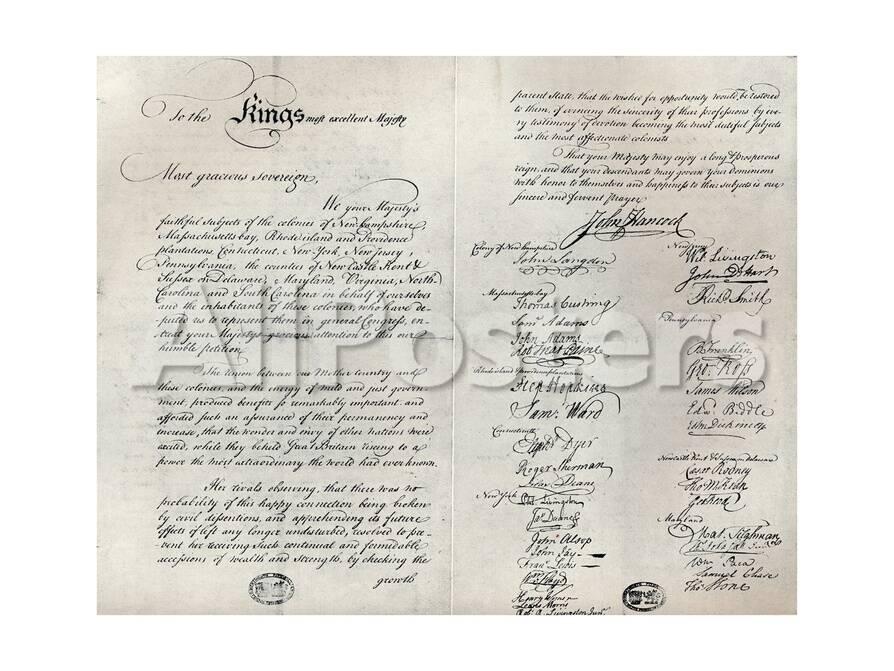 To the Kings most excellent Majesty
Most gracious Sovereign,
We your Majesty's
faithful subjects of the colonies of New hampshire,
Massachusetts bay, Rhode island and Providence
plantations, Connecticut, New York, New Jersey,
Pennsylvania, the counties of New Castle Kent &
Sussex on Delaware, Maryland, Virginia, North-
Carolina and South Carolina in behalf of ourselves
and the inhabitants of these colonies, who have de-
puted us to represent them in general Congress, en-
treat your Majestys gracious attention to this our
humble petition.
The union between our Mother country and
these colonies, and the energy of mild and just govern-
ment, produced benefits so remarkably important, and
afforded such an assurance of their permanency and
increase, that the wonder and envy of other nations were
excited, while they beheld Great Britain riseing to a
power the most extraordinary the world had ever known.
Her rivals observing, that there was no
probability of this happy connection being broken
by civil dissentions, and apprehending its future
effects if left any longer undisturbed, resolved to pre-
vent her receiving such continual and formidable
accessions of wealth and strength, by checking the
growth
parent State, that the wished for opportunity would be restored
to them, of evincing the sincerity of their professions by eve-
ry testimony of devotion becoming the most dutiful subjects
and the most affectionate colonists
That your Majesty may enjoy a long & prosperous
reign, and that your descendants may govern your dominions
with honor to themselves and happiness to their subjects is our
sincere and fervent prayer
John Hancock
Colony of New hampshire
John Langdon
Massachusetts bay
Thomas Cushing
Saml Adams
John Adams
Robt Treat Paine
Rhode island & providence plantations
Step Hopkins
Sam: Ward
Connecticut
Elipht Dyer
Roger Sherman
Silas Deane
New York
Phil. Livingston
Jas Duane
John Alsop
John Jay
Frans Lewis
Wm Floyd
Henry Wisner
Lewis Morris
New Jersey
Wil: Livingston
John D Hart
Richd Smith
Pennsylvania
B Franklin
Geo: Ross
James Wilson
Edwd Biddle
New Castle Kent & Sussex on Delaware
Caesar Rodney
Tho M:Kean
Geo Read
Maryland
Mat. Tilghman
Wm Paca
Samuel Chase
Thos Stone
AllPosters